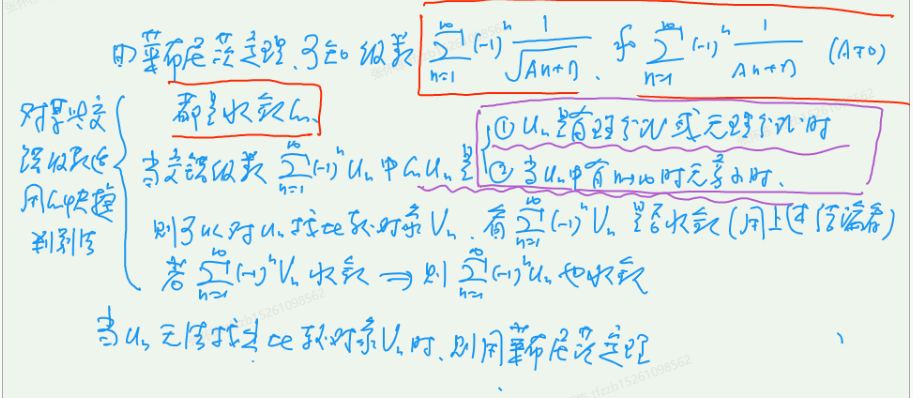 由莱布尼茨定理,可知级数 $\sum_{n=1}^{\infty}(-1)^n\frac{1}{\sqrt{An+B}}$、和 $\sum_{n=1}^{\infty}(-1)^n\frac{1}{An+B}$ (A>0)
都是收敛的、
对某些交错级数适用的快捷判别法
当交错级数 $\sum_{n=1}^{\infty}(-1)^n U_n$ 中的 $U_n$ 是
① $U_n$ 是有理分式或无理分式时
② 当 $U_n$ 中有 n→∞ 时无穷小时、
则可以对 $U_n$ 找比较对象 $V_n$、看 $\sum_{n=1}^{\infty}(-1)^n V_n$ 是否收敛(用上述结论看)
若 $\sum_{n=1}^{\infty}(-1)^n V_n$ 收敛 ⇒ 则 $\sum_{n=1}^{\infty}(-1)^n U_n$ 也收敛
当 $U_n$ 无法找出比较对象 $V_n$ 时、则用莱布尼茨定理
tfzzb15261098562